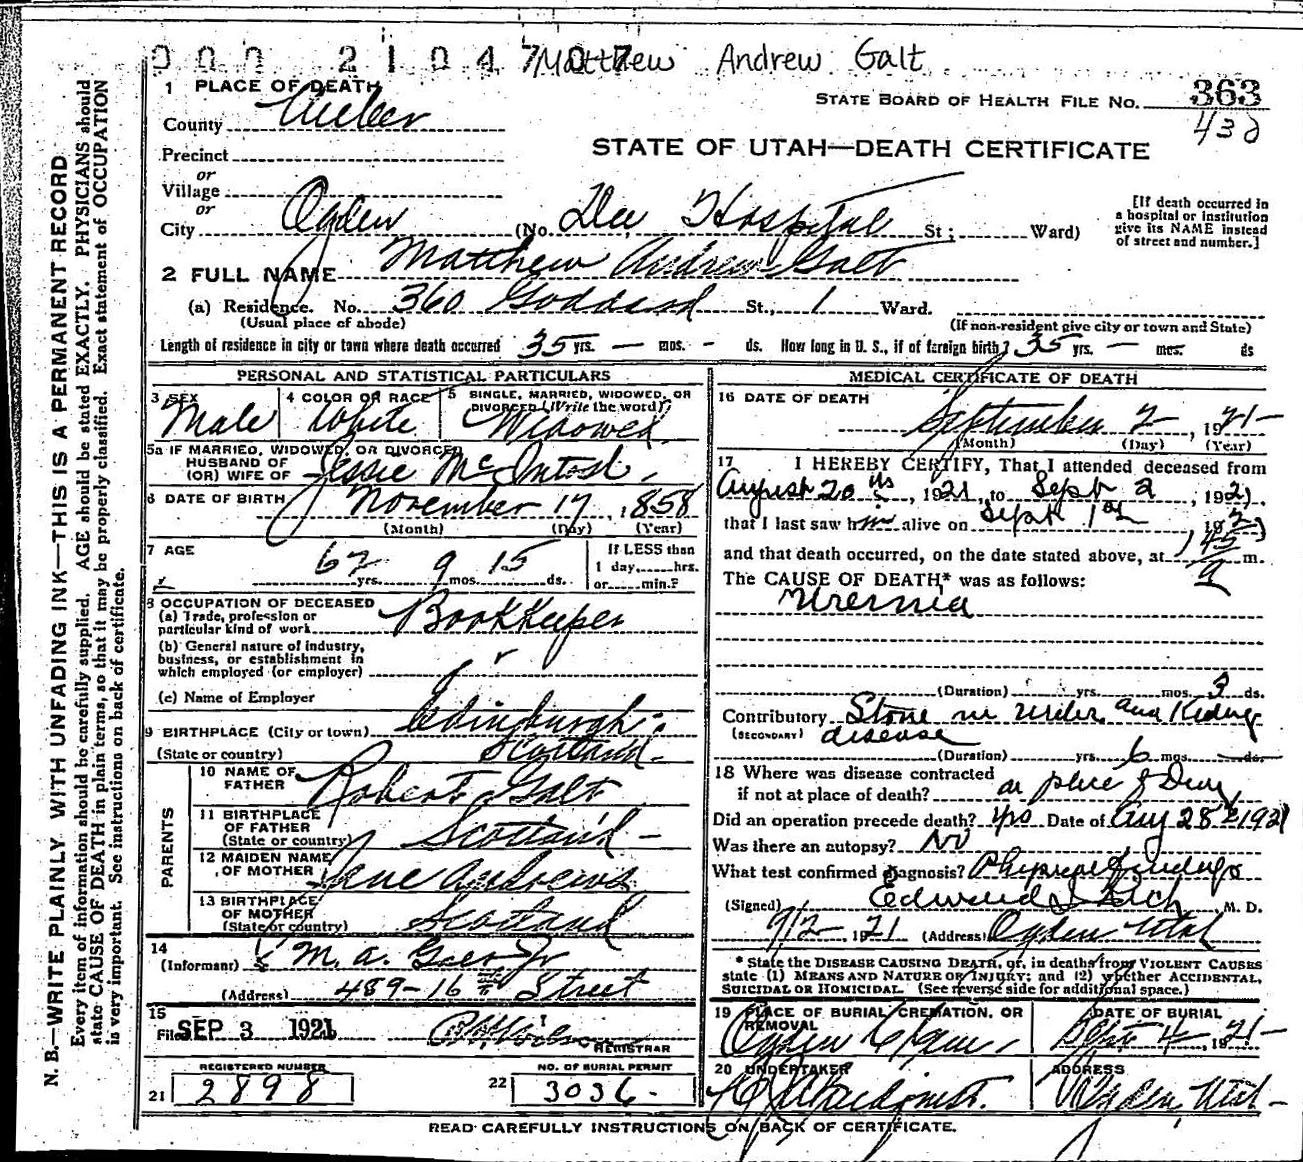 000 2104707 Matthew Andrew Galt
1 PLACE OF DEATH
STATE BOARD OF HEALTH FILE NO. 363
County Weber
438
Precinct
STATE OF UTAH—DEATH CERTIFICATE
or
Village
or
City Ogden (No. Dee Hospital St; Ward)
[If death occurred in a hospital or institution give its NAME instead of street and number.]
2 FULL NAME Matthew Andrew Galt
(a) Residence. No. 360 Goddard St., 1 Ward.
(Usual place of abode) (If non-resident give city or town and State)
Length of residence in city or town where death occurred 35 yrs. — mos. - ds. How long in U. S., if of foreign birth? 35 yrs. — mos. ds
PERSONAL AND STATISTICAL PARTICULARS
3 SEX Male
4 COLOR OR RACE White
5 SINGLE, MARRIED, WIDOWED, OR DIVORCED (Write the word) Widowed
5a IF MARRIED, WIDOWED, OR DIVORCED
HUSBAND OF
(OR) WIFE OF Jessie McIntosh
6 DATE OF BIRTH November 17, 1858
(Month) (Day) (Year)
7 AGE 62 yrs. 9 mos. 15 ds.
If LESS than
1 day, hrs.
or min.?
8 OCCUPATION OF DECEASED
(a) Trade, profession or
particular kind of work Bookkeeper
(b) General nature of industry,
business, or establishment in
which employed (or employer)
(c) Name of Employer
9 BIRTHPLACE (City or town) Edinburgh
(State or country) Scotland
PARENTS
10 NAME OF FATHER Robert Galt
11 BIRTHPLACE OF FATHER
(State or country) Scotland
12 MAIDEN NAME OF MOTHER Jane Andrews
13 BIRTHPLACE OF MOTHER
(State or country) Scotland
14
(Informant) M. A. Galt Jr
(Address) 489-16th Street
15
Filed SEP 3 1921
REGISTRAR
REGISTERED NUMBER
21 2898
NO. OF BURIAL PERMIT
22 3036
MEDICAL CERTIFICATE OF DEATH
16 DATE OF DEATH
September 2, 1921
(Month) (Day) (Year)
17 I HEREBY CERTIFY, That I attended deceased from
August 20, 1921, to Sept 2, 1921
that I last saw him alive on Sept 1st, 192
and that death occurred, on the date stated above, at 145 a m.
The CAUSE OF DEATH,* was as follows:
Uremia
(Duration) yrs. mos. 3 ds.
Contributory Stone in Ureter and Kidney
(SECONDARY) disease
(Duration) yrs. 6 mos. ds.
18 Where was disease contracted
if not at place of death? at place of
Did an operation precede death? yes Date of Aug 28 1921
Was there an autopsy? No
What test confirmed diagnosis? Physical findings
(Signed) Edward I Rich, M. D.
9/2, 1921 (Address) Ogden Utah
* State the DISEASE CAUSING DEATH, or, in deaths from VIOLENT CAUSES
state (1) MEANS AND NATURE OF INJURY; and (2) whether ACCIDENTAL,
SUICIDAL OR HOMICIDAL. (See reverse side for additional space.)
19 PLACE OF BURIAL, CREMATION, OR REMOVAL
Ogden
DATE OF BURIAL
Sept 4, 1921
20 UNDERTAKER
ADDRESS
Ogden, Utah
READ CAREFULLY INSTRUCTIONS ON BACK OF CERTIFICATE.
N. B.—WRITE PLAINLY WITH UNFADING INK—THIS IS A PERMANENT RECORD
Every item of information should be carefully supplied. AGE should be stated EXACTLY. PHYSICIANS should
state CAUSE OF DEATH in plain terms, so that it may be properly classified. Exact statement of OCCUPATION
is very important. See instructions on back of certificate.